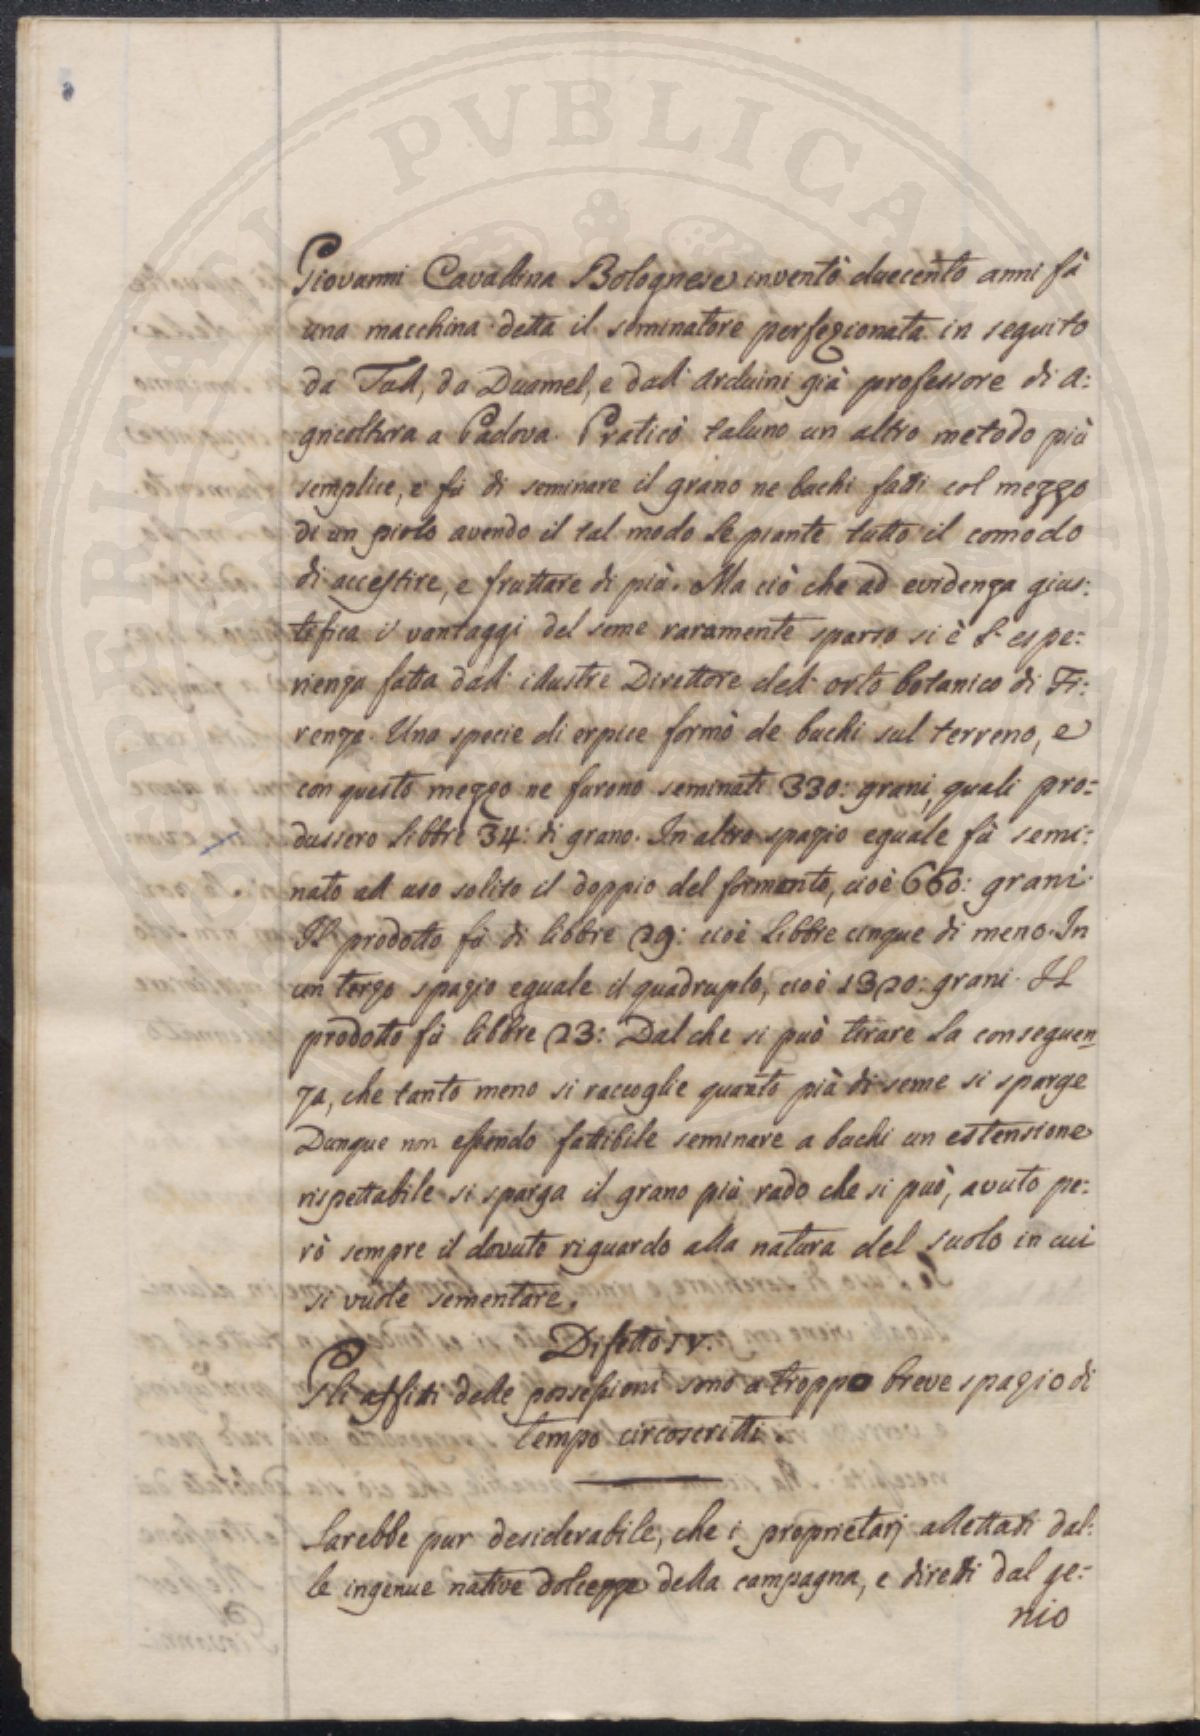 PVBLICAE
VERITAS
Giovanni Cavallina Bolognese inventò duecento anni fà
una macchina detta il seminatore perfezionata in seguito
da Tull, da Duamel, e dall' Arduini già professore di a:
gricoltura a Padova. Praticò taluno un altro metodo più
semplice, e fù di seminare il grano ne buchi fatti col mezzo
di un piolo avendo il tal modo le piante tutto il comodo
di accestire, e fruttare di più. Ma ciò che ad evidenza gius:
tifica i vantaggi del seme raramente sparso si è l' espe:
rienza fatta dall' illustre Direttore dell' orto botanico di Fi:
renze. Una specie di erpice formò de buchi sul terreno, e
con questo mezzo ne furono seminati 330: grani, quali pro=
dussero libbre 34: di grano. In altro spazio eguale fù semi:
nato all uso solito il doppio del formento, cioè 660: grani.
Il prodotto fù di libbre 29: cioè libbre cinque di meno. In
un terzo spazio eguale il quadruplo, cioè 1320: grani. Il
prodotto fù libbre 23: Dal che si può tirare la conseguen=
za, che tanto meno si raccoglie quanto più di seme si sparge
Dunque non essendo fattibile seminare a buchi un estensione
rispettabile si sparga il grano più rado che si può, avuto pe:
rò sempre il dovuto riguardo alla natura del suolo in cui
si vuole sementare.
Difetto IV.
Gli affitti delle possessioni sono a troppo breve spazio di
tempo circoscritti
Sarebbe pur desiderabile, che i proprietarj allettati dal:
le ingenue native dolcezze della campagna, e diretti dal ge:
nio